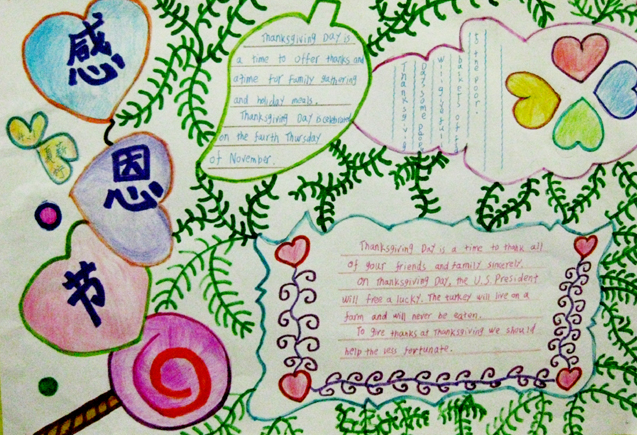 感
恩
节
Thanksgiving Day is
a time to offer thanks and
a time for family gathering
and holiday meals.
Thanksgiving Day is celebrated
on the fourth Thursday
of November.
Thanksgiving
Day some people
will give full
baskets of
to the poor.
Thanksgiving Day is a time to thank all
of your friends and family sincerely.
On Thanksgiving Day, the U.S President
will free a lucky. The turkey will live on a
farm and will never be eaten.
To give thanks at Thanksgiving we should
help the less fortunate.